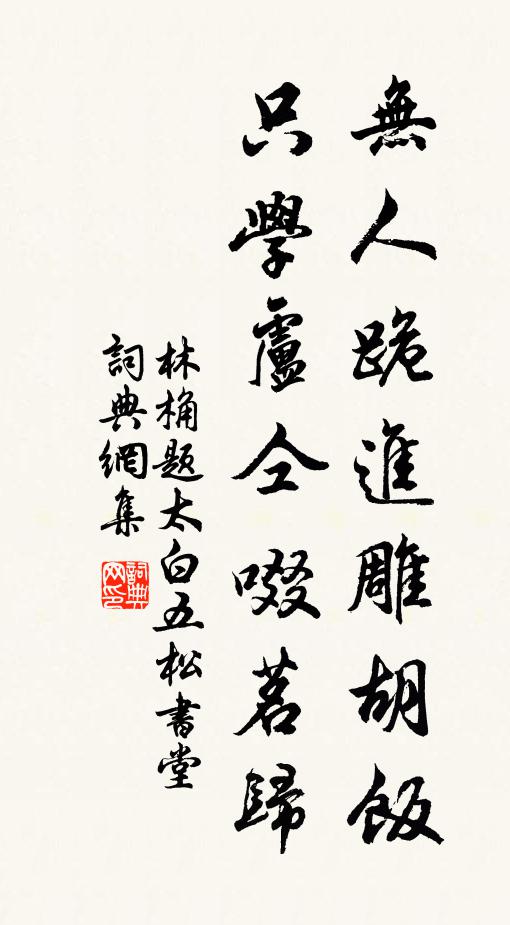 無人跪進雕胡飯
只學盧仝啜茗歸
林桷題太白五松書堂
詞典網集
詞典网印